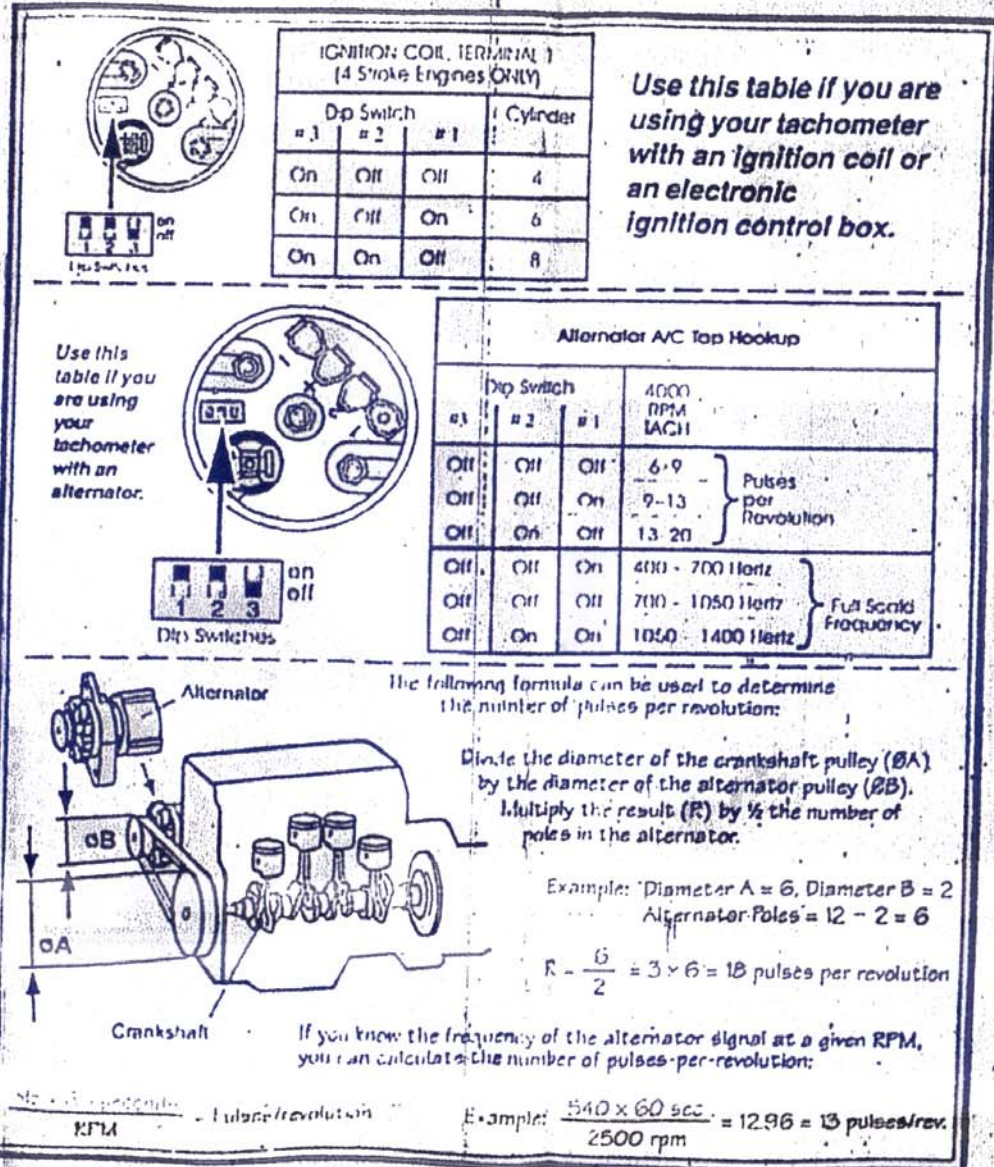 IGNITION COIL TERMINAL
(4 Stroke Engines ONLY)
Dip Switch Cylinder
#3 #2 #1
On Off Off 4
On Off On 6
On On Off 8
Use this table if you are
using your tachometer
with an ignition coil or
an electronic
ignition control box.
on
off
1 2 3
Dip Switches
Use this
table if you
are using
your
tachometer
with an
alternator.
on
off
1 2 3
Dip Switches
Alternator A/C Tap Hookup
Dip Switch 4000
RPM
TACH
#3 #2 #1
Off Off Off 6-9
Off Off On 9-13
Off On Off 13-20
Pulses
per
Revolution
Off Off On 400 - 700 Hertz
Off Off Off 700 - 1050 Hertz
Off On On 1050 - 1400 Hertz
Full Scale
Frequency
Alternator
ØB
ØA
Crankshaft
The following formula can be used to determine
the number of pulses per revolution:
Divide the diameter of the crankshaft pulley (ØA)
by the diameter of the alternator pulley (ØB).
Multiply the result (R) by ½ the number of
poles in the alternator.
Example: Diameter A = 6, Diameter B = 2
Alternator Poles = 12 ÷ 2 = 6
R = 6/2 = 3 x 6 = 18 pulses per revolution
If you know the frequency of the alternator signal at a given RPM,
you can calculate the number of pulses-per-revolution:
RPM
= Pulses/revolution
Example: 540 x 60 sec = 12.96 = 13 pulses/rev.
2500 rpm